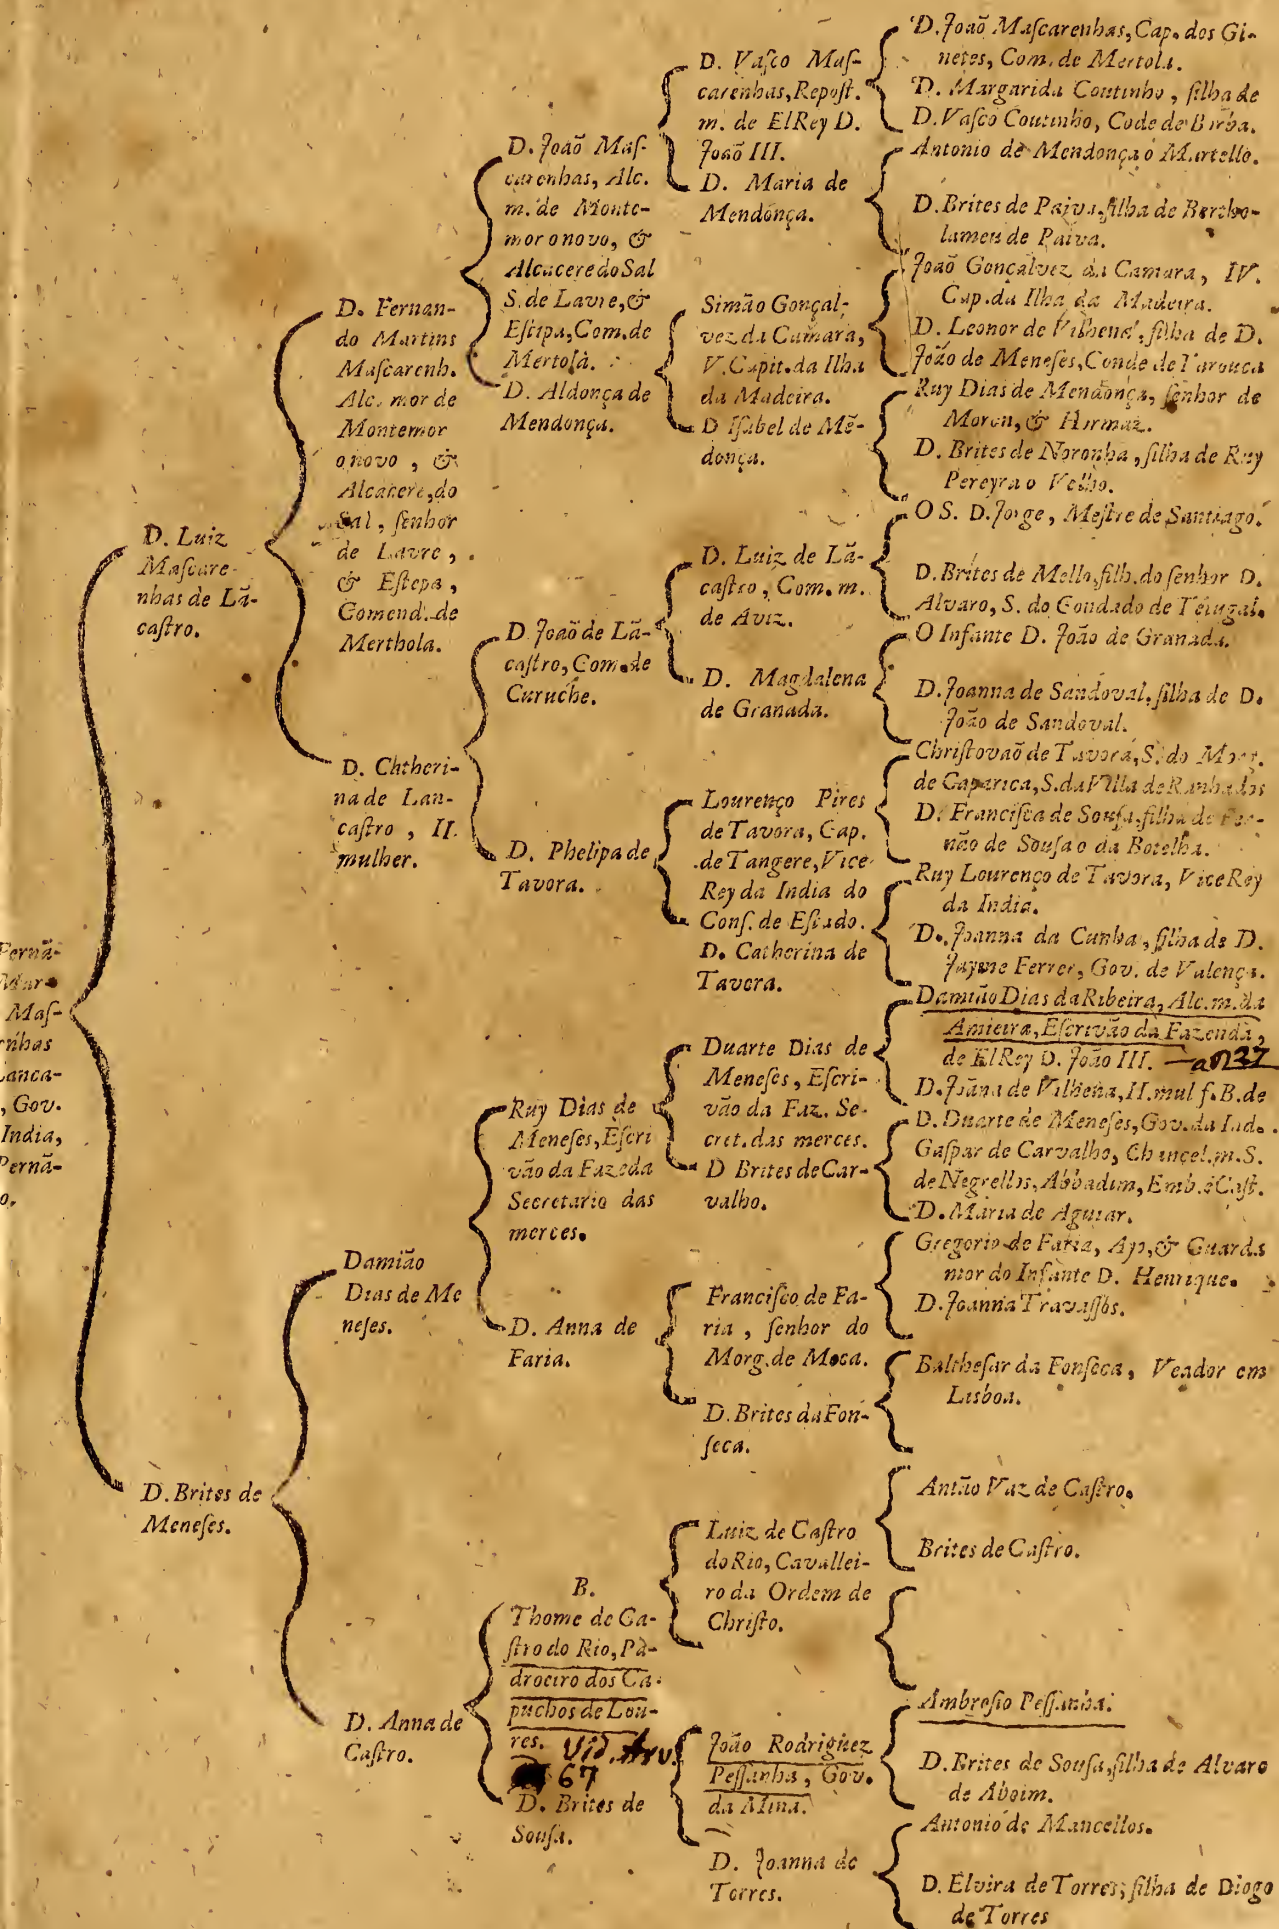 Fernã-
Mar-
Maſ-
enhas
Lanca-
, Gov.
India,
Pernã-
o.
D. Luiz
Maſcare-
nhas de Lã-
caſtro.
D. Brites de
Meneſes.
D. Fernan-
do Martins
Maſcarenh.
Alc. mor de
Montemor
onovo, &
Alcacere, do
Sal, ſenhor
de Lavre,
& Eſtepa,
Comend. de
Merthola.
D. Chtheri-
na de Lan-
caſtro, II.
mulher.
Damião
Dias de Me
neſes.
D. Anna de
Caſtro.
D. João Maſ-
carenhas, Alc.
m. de Monte-
mor o novo, &
Alcacere do Sal
S. de Lavre, &
Eſtepa, Com. de
Mertola.
D. Aldonça de
Mendonça.
D. João de Lã-
caſtro, Com. de
Curuche.
D. Phelipa de
Tavora.
Ruy Dias de
Meneſes, Eſcri
vão da Fazẽda
Secretario das
merces.
D. Anna de
Faria.
B.
Thome de Ca-
ſtro do Rio, Pa-
droeiro dos Ca-
puchos de Lou-
res. Vid. Arv.
67
D. Brites de
Souſa.
D. Vaſco Maſ-
carenhas, Repoſt.
m. de ElRey D.
João III.
D. Maria de
Mendonça.
Simão Gonçal-
vez da Camara,
V. Capit. da Ilha
da Madeira.
D Iſabel de Mẽ-
donça.
D. Luiz de Lã-
caſtro, Com. m.
de Aviz.
D. Magdalena
de Granada.
Lourenço Pires
de Tavora, Cap.
de Tangere, Vice
Rey da India do
Conſ. de Eſtado.
D. Catherina de
Tavora.
Duarte Dias de
Meneſes, Eſcri-
vão da Faz. Se-
cret. das merces.
D Brites de Car-
valho.
Franciſco de Fa-
ria, ſenhor do
Morg. de Moca.
D. Brites da Fon-
ſeca.
Luiz de Caſtro
do Rio, Cavallei-
ro da Ordem de
Chriſto.
João Rodriguez
Peſſanha, Gov.
da Mina.
D. Joanna de
Torres.
D. João Maſcarenhas, Cap. dos Gi-
netes, Com. de Mertola.
D. Margarida Coutinho, filha de
D. Vaſco Coutinho, Cõde de Borba.
Antonio de Mendonça o Martello.
D. Brites de Paiva, filha de Bertho-
lameu de Paiva.
João Gonçalvez da Camara, IV.
Cap. da Ilha da Madeira.
D. Leonor de Vilhena, filha de D.
João de Meneſes, Conde de Tarouca
Ruy Dias de Mendonça, ſenhor de
Moron, & Hormaz.
D. Brites de Noronha, filha de Ruy
Pereyra o Velho.
O S. D. Jorge, Meſtre de Santiago.
D. Brites de Mello, filh. do ſenhor D.
Alvaro, S. do Condado de Tentugal.
O Infante D. João de Granada.
D. Joanna de Sandoval, filha de D.
João de Sandoval.
Chriſtovaõ de Tavora, S. do Morg.
de Caparica, S. da Villa de Ranhados
D. Franciſca de Souſa, filha de Fer-
não de Souſa o da Botelha.
Ruy Lourenço de Tavora, ViceRey
da India.
D. Joanna da Cunha, filha de D.
Jayme Ferrer, Gov. de Valença.
Damião Dias da Ribeira, Alc. m. da
Amieira, Eſcrivão da Fazenda,
de ElRey D. João III.
D. Joãna de Vilhena, II. mul f. B. de
D. Duarte de Meneſes, Gov. da Ind.
Gaſpar de Carvalho, Chancel. m. S.
de Negrellos, Abbadim, Emb. ẽ Caſt.
D. Maria de Aguiar.
Gregorio de Faria, Ayo, & Guarda
mor do Infante D. Henrique.
D. Joanna Travaſſos.
Baltheſar da Fonſeca, Veador em
Lisboa.
Antão Vaz de Caſtro.
Brites de Caſtro.
Ambroſio Peſſanha.
D. Brites de Souſa, filha de Alvaro
de Aboim.
Antonio de Mancellos.
D. Elvira de Torres, filha de Diogo
de Torres